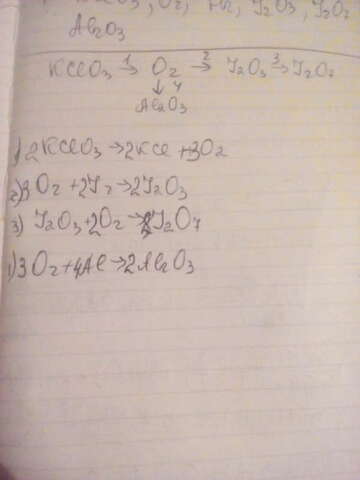 O₂, J₂O₃, J₂O₇
Al₂O₃
KClO₃ 1→ O₂ 2→ J₂O₃ 3→ J₂O₇
↓ 4
Al₂O₃
1) 2KClO₃ → 2KCl + 3O₂
2) 3O₂ + 2J₂ → 2J₂O₃
3) J₂O₃ + 2O₂ → J₂O₇
4) 3O₂ + 4Al → 2Al₂O₃